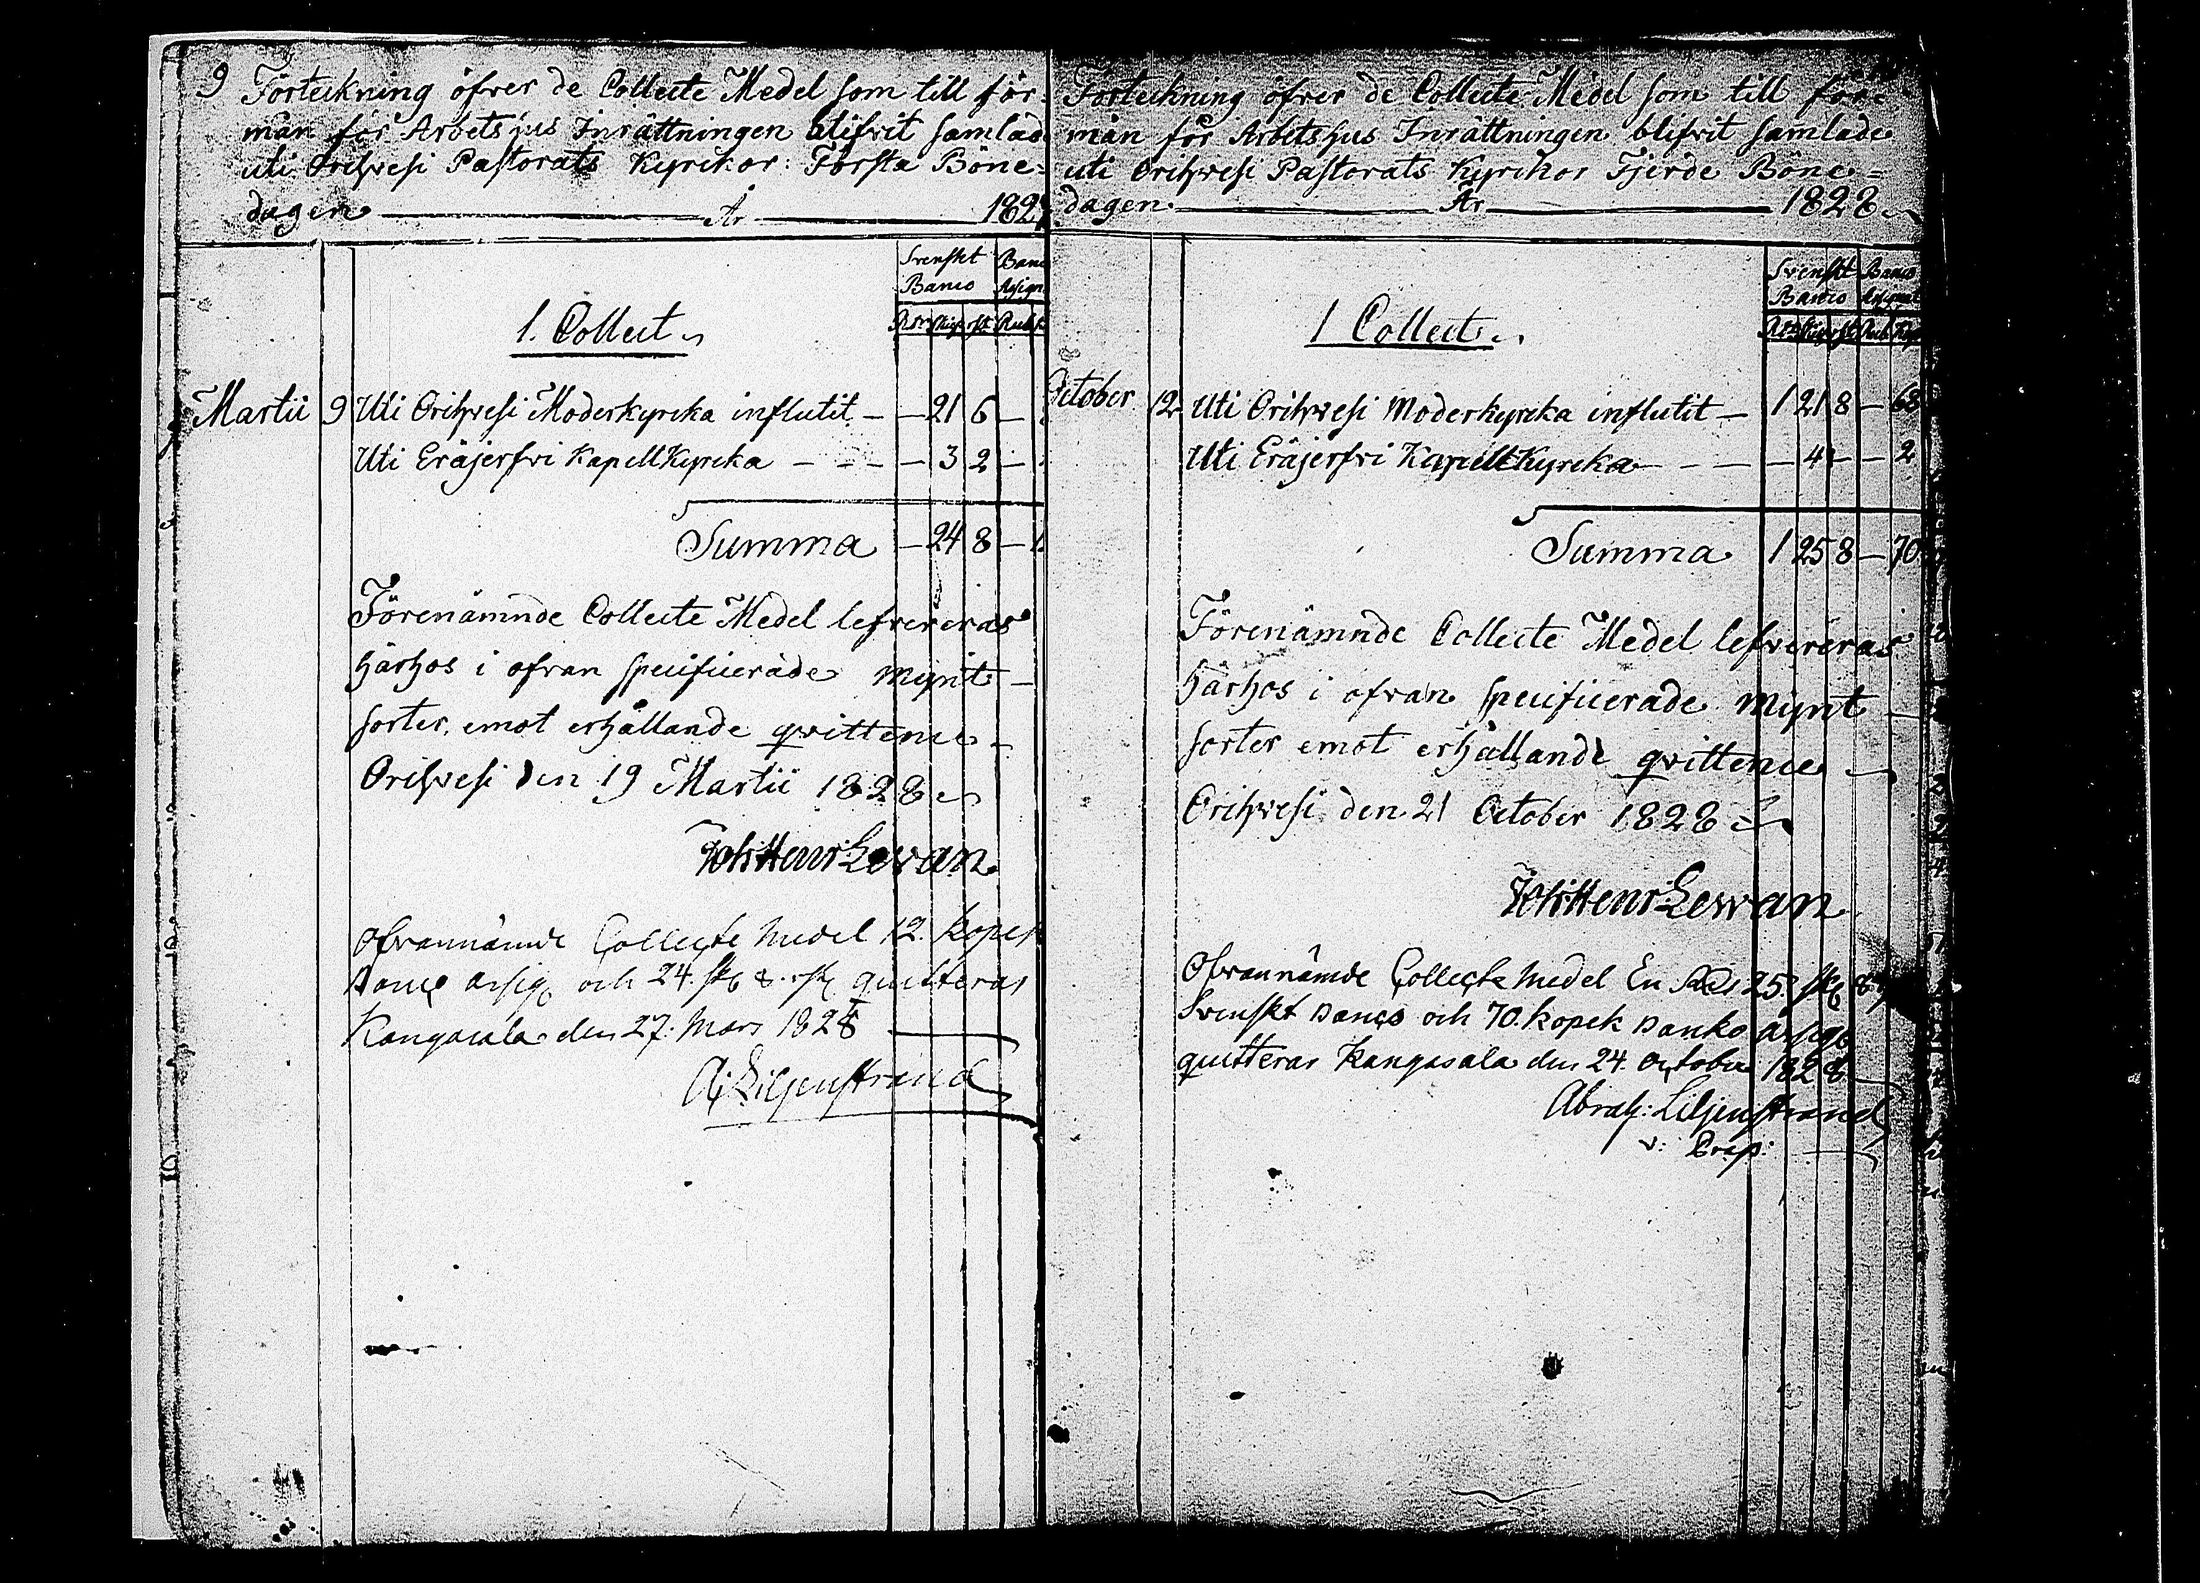 9 Förteckning öfver de Collecte Medel som till för-
mån för Arbetshus Inrättningen blifvit samlade
uti Orihvesi Pastorats Kyrckor Första Böne-
dagen År 182
Svenskt Banco
Banco Assign
Rdr Skg rst Rub
1. Collect
Martii 9 Uti Orihvesi Moderkyrcka influtit — — 21 6 —
Uti Eräjerfvi KapellKyrcka — — — — 3 2 —
Summa — 24 8 — 1
Förenämnde Collecte Medel lefvereras
härhos i ofvan specificerade mynt-
sorter, emot erhållande qvittence
Orihvesi den 19 Martii 1828
Joh Henr Levan
Ofvannämde Collecte Medel 12. Kopek
Banco assig. och 24. sk. 8. rst. quitteras
Kangasala den 27. Mars 1828
A; Liljenstrand
Förteckning öfver de Collecte Medel som till för-
mån för Arbetshus Inrättningen blifvit samlade
uti Orihvesi Pastorats Kyrckor Fjerde Böne-
dagen År 1828
Svenskt Banco
Banco Assignat
Rdr Skg rst Rub Kop
1 Collect
October 12 Uti Orihvesi Moderkyrcka influtit — 1 21 8 — 68
Uti Eräjerfvi KapellKyrcka — — — — 4 — — 2
Summa 1 25 8 — 70
Förenämnde Collecte Medel lefvereras
härhos i ofvan specificerade mynt
sorter emot erhållande qvittence
Orihvesi den 21 October 1828
Joh Henr Levan
Ofvannämde Collecte Medel En Rdr 25 sk 8
Svenskt Banco och 70. kopek Banko assig.
quitteras Kangasala den 24. October 1828
Abrah: Liljenstrand
v: Præp: